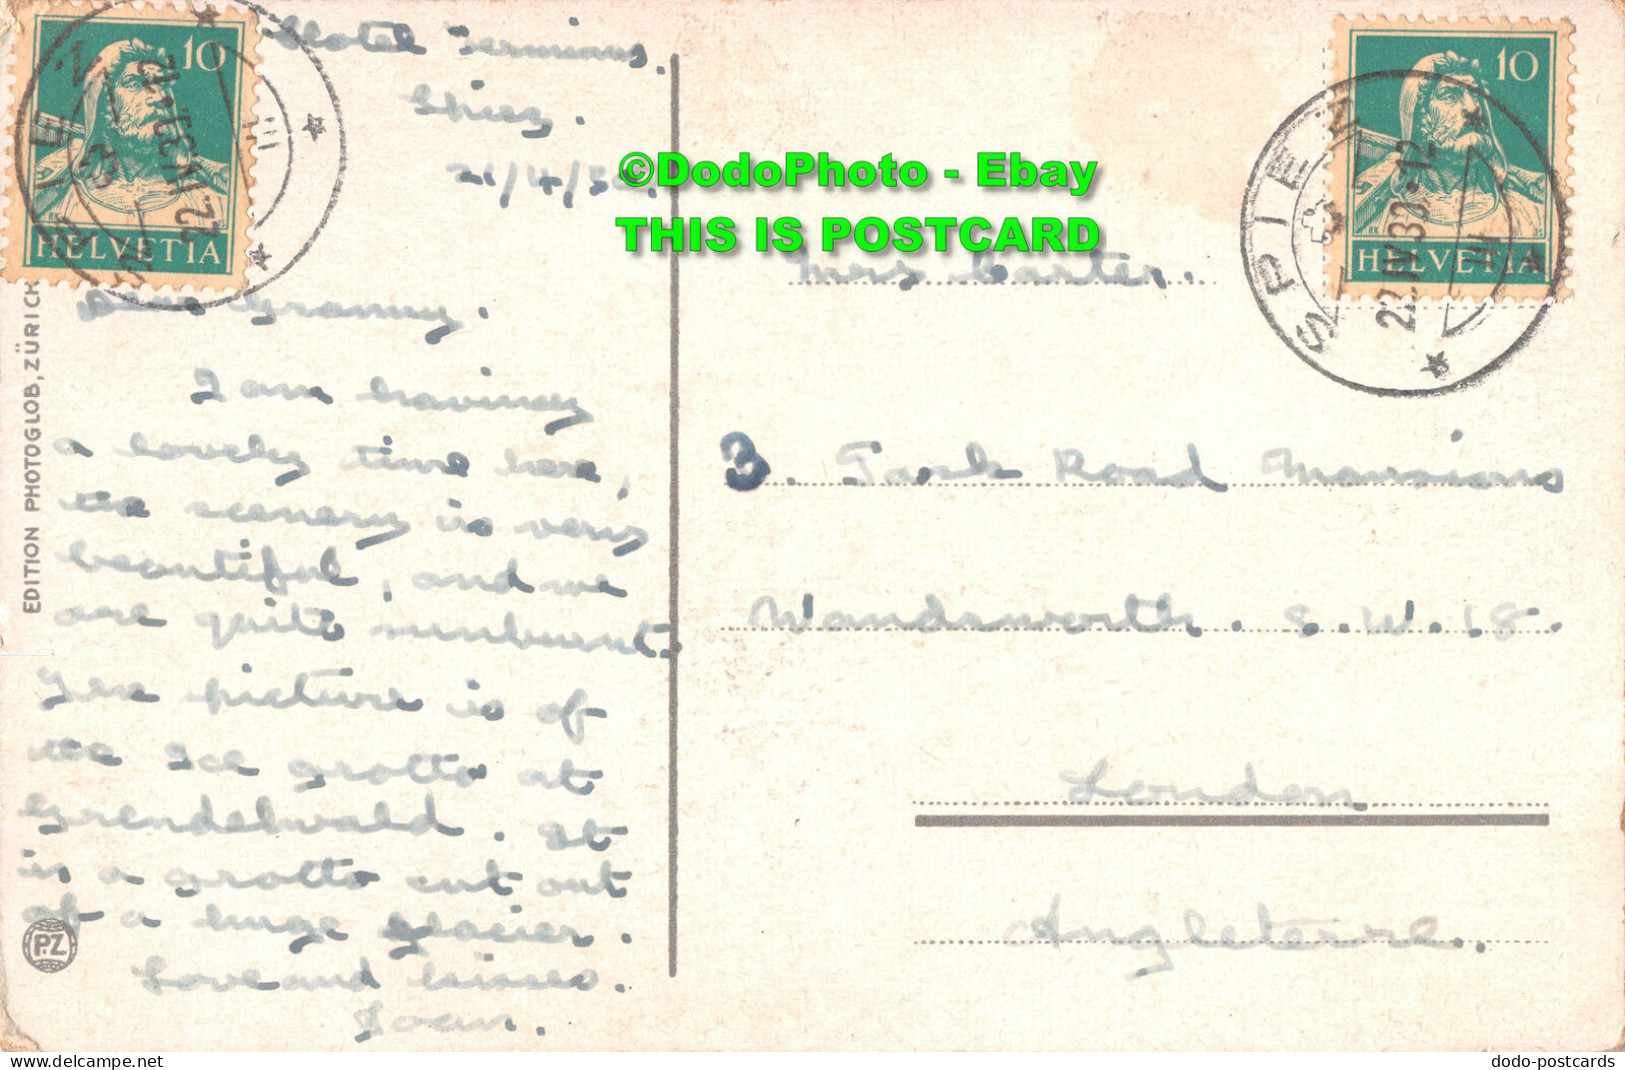 Hotel Terminus.
Spiez.
21/4/3
10
HELVETIA
22.IV.33.-12
10
HELVETIA
SPIEZ
22.IV.33.-12
©DodoPhoto - Ebay
THIS IS POSTCARD
Dear Granny.
I am having
a lovely time here,
the scenery is very
beautiful, and we
are quite sunburnt.
The picture is of
the Ice grotto at
Grendelwald. It
is a grotto cut out
of a huge glacier.
Love and kisses.
Joan.
Mrs Carter.
3. Park Road Mansions
Wandsworth. S.W.18.
London
Angleterre.
EDITION PHOTOGLOB, ZÜRICH
P.Z
delcampe.net
dodo-postcards